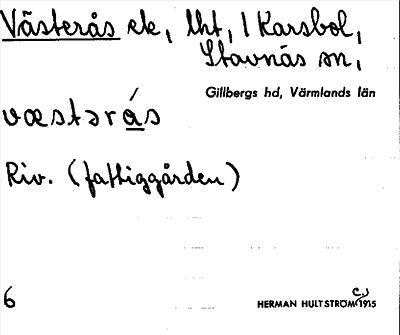 Västerås ek, lht, 1 Karsbol,
Stavnäs sn,
Gillbergs hd, Värmlands län
væstərás
Riv. (fattiggården)
6
HERMAN HULTSTRÖM c. 1915